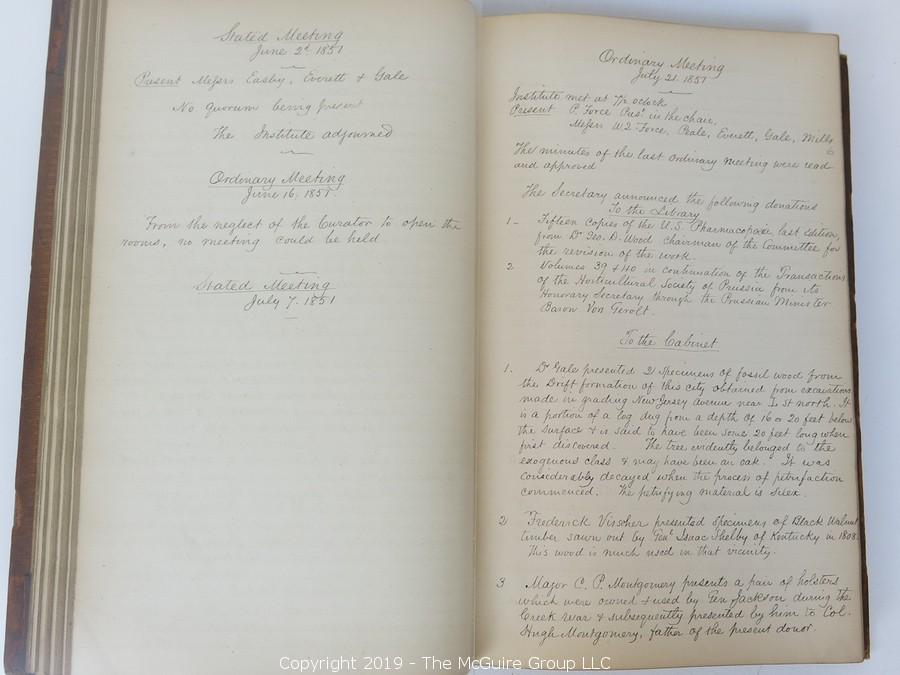 Stated Meeting
June 2d 1851
Present Messrs Easby, Everett & Gale
No quorum being present
The Institute adjourned
Ordinary Meeting
June 16. 1851.
From the neglect of the Curator to open the
rooms, no meeting could be held
Stated Meeting
July 7. 1851
Ordinary Meeting
July 21. 1851
Institute met at 7½ oclock
Present P. Force Prest in the chair.
Messrs W. Q. Force, Peale, Everett, Gale, Mills
The minutes of the last ordinary meeting were read
and approved
The Secretary announced the following donations
To the Library
1- Fifteen Copies of the U.S. Pharmacopœa, last edition,
from Dr Geo. B. Wood chairman of the Committee for
the revision of the work.
2 Volumes 39 & 40 in continuation of the Transactions
of the Horticultural Society of Prussia from its
Honorary Secretary through the Prussian Minister
Baron Von Gerolt.
To the Cabinet
1. Dr Gale presented 2 specimens of fossil wood from
the Drift formation of this city obtained from excavations
made in grading New Jersey Avenue near I St north. It
is a portion of a log dug from a depth of 16 or 20 feet below
the surface & is said to have been some 20 feet long when
first discovered. The tree evidently belonged to the
exogenous class & may have been an oak. It was
considerably decayed when the process of petrifaction
commenced. The petrifying material is silex.
2 Frederick Visscher presented specimens of Black Walnut
timber sawn out by Genl Isaac Shelby of Kentucky in 1808.
This wood is much used in that vicinity.
3 Major C. P. Montgomery presents a pair of holsters
which were owned & used by Gen Jackson during the
Creek War & subsequently presented by him to Col.
Hugh Montgomery, father of the present donor.
Copyright 2019 - The McGuire Group LLC